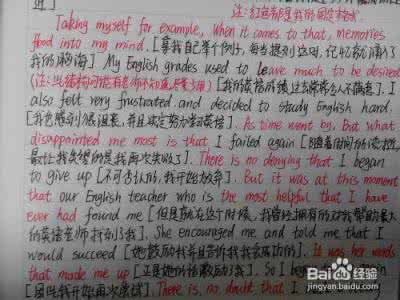 注:红笔都是我的固定句式.
Taking myself for example, when it comes to that, memories
flood into my mind. [拿我自己举个例子, 每当提到这时, 记忆就涌满了
我的脑海] My English grades used to leave much to be desired
(注:此结构可能有老师不知道,尽量少用) [我的英语成绩过去常常令人不满意]. I
also felt very frustrated and decided to study English hard.
[我也感到很沮丧, 并且决定努力学习英语]. As time went by, But what
disappointed me most is that I failed again [随着时间的流逝,
最让我失望的是我再次失败了]. There is no denying that I began
to give up [不可否认的, 我开始放弃]. But it was at this moment
that our English teacher who is the most helpful that I have
ever had found me [但是就在这个时候, 我曾经拥有的对我帮助最大
的英语老师找到了我]. She encouraged me and told me that I
would succeed [她鼓励我并且告诉我我会成功的]. It was her words
that made me up [正是她的话激励了我]. So I began
[因此我开始再次尝试]. There is no doubt that I
Baidu 经验